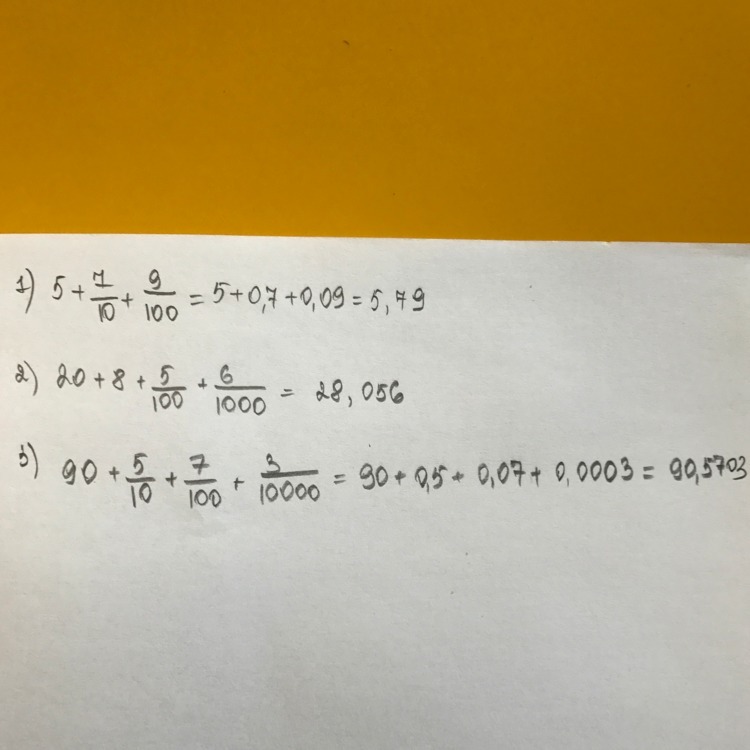 1) 5 + 7/10 + 9/100 = 5+0,7+0,09 = 5,79
2) 20 + 8 + 5/100 + 6/1000 = 28,056
3) 90 + 5/10 + 7/100 + 3/10000 = 90 + 0,5 + 0,07 + 0,0003 = 90,5703